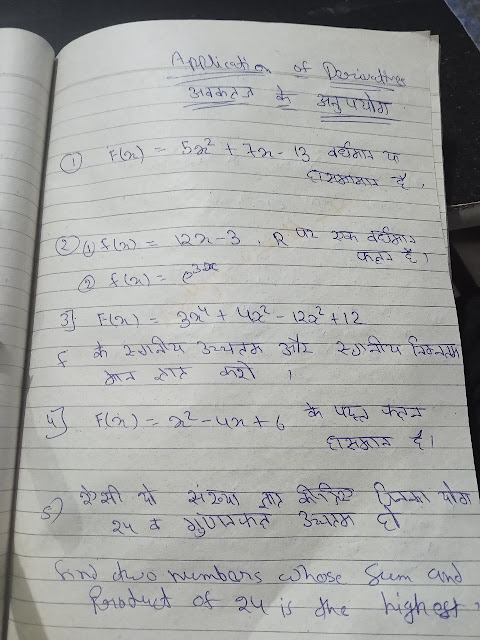 Application of Derivatives
अवकलन के अनुप्रयोग
① F(x) = 5x² + 7x - 13 वर्धमान या
ह्रासमान है,
② ① f(x) = 12x-3, R पर एक वर्धमान
फलन है।
② f(x) = e³ˣ
3] F(x) = 3x⁴ + 4x² - 12x² + 12
f के स्थानीय उच्चतम और स्थानीय निम्नतम
मान ज्ञात करो ,
4] F(x) = x² - 4x + 6 के फलन
ह्रासमान है।
5) ऐसी दो संख्या ज्ञात कीजिए जिनका योग
24 व गुणनफल उच्चतम हो
find two numbers whose Sum and
Product of 24 is the highest.